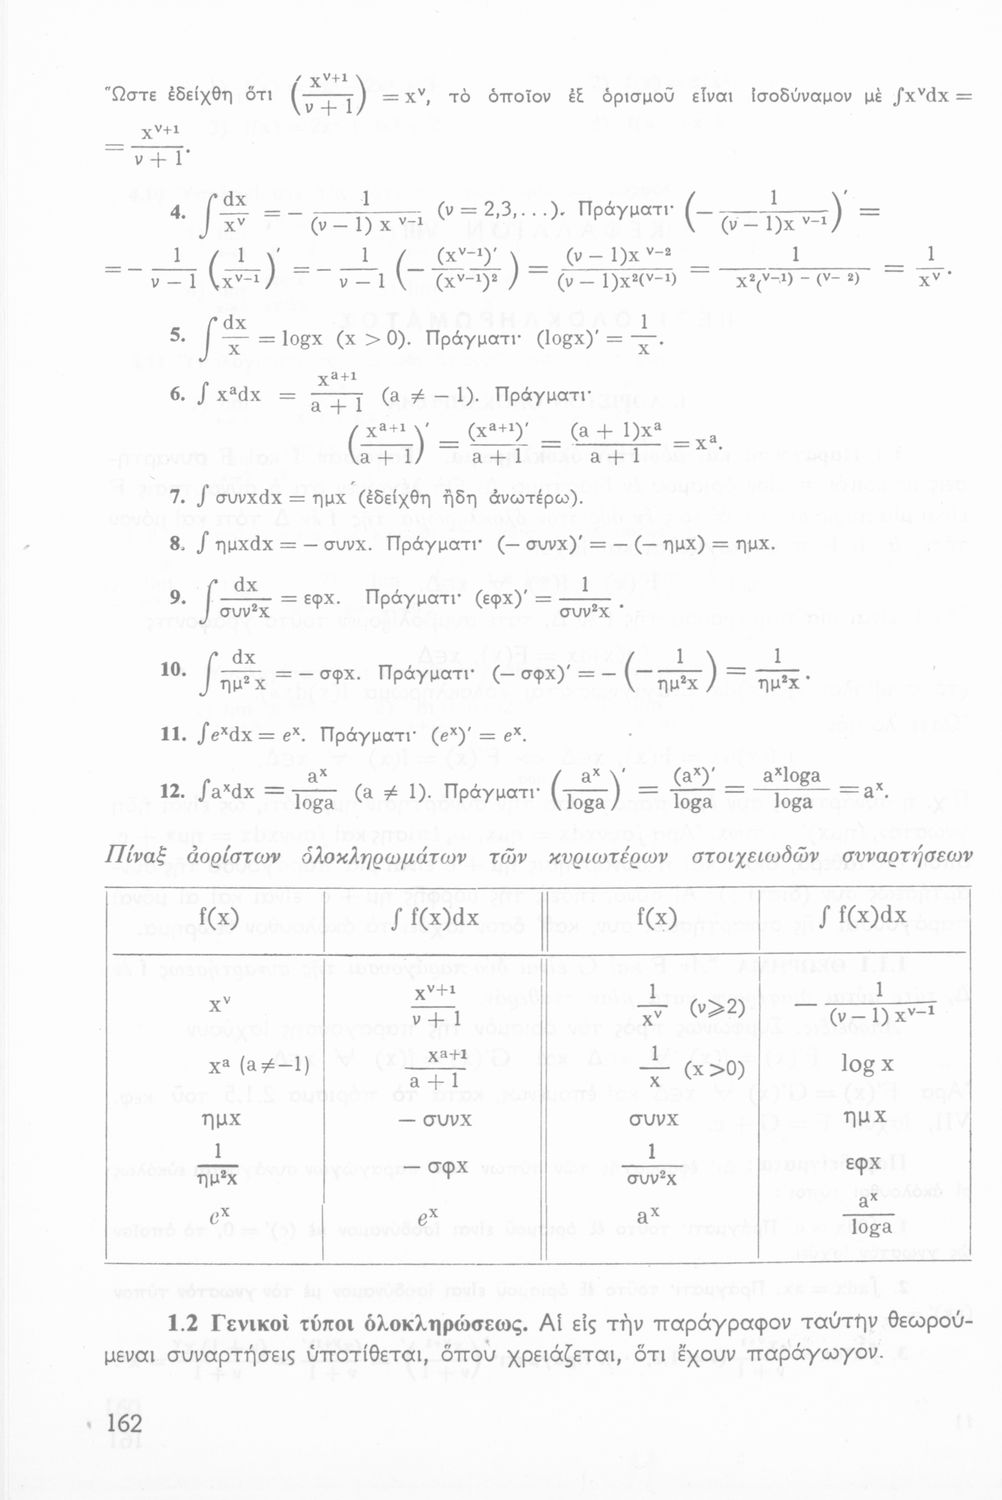 Ὥστε ἐδείχθη ὅτι (x^{ν+1}/(ν + 1))′ = x^ν, τὸ ὁποῖον ἐξ ὁρισμοῦ εἶναι ἰσοδύναμον μὲ ∫x^νdx =
= x^{ν+1}/(ν + 1).
4. ∫ dx/x^ν = − 1/((ν − 1) x^{ν−1}) (ν = 2,3,...). Πράγματι· (− 1/((ν − 1)x^{ν−1}))′ =
= − 1/(ν − 1) (1/x^{ν−1})′ = − 1/(ν − 1) (− (x^{ν−1})′/(x^{ν−1})²) = (ν − 1)x^{ν−2}/((ν − 1)x^{2(ν−1)}) = 1/x^{2(ν−1) − (ν− 2)} = 1/x^ν.
5. ∫ dx/x = logx (x > 0). Πράγματι· (logx)′ = 1/x.
6. ∫ x^adx = x^{a+1}/(a + 1) (a ≠ − 1). Πράγματι·
(x^{a+1}/(a + 1))′ = (x^{a+1})′/(a + 1) = (a + 1)x^a/(a + 1) = x^a.
7. ∫ συνxdx = ημx (ἐδείχθη ἤδη ἀνωτέρω).
8. ∫ ημxdx = − συνx. Πράγματι· (− συνx)′ = − (− ημx) = ημx.
9. ∫ dx/συν²x = εφx. Πράγματι· (εφx)′ = 1/συν²x.
10. ∫ dx/ημ²x = − σφx. Πράγματι· (− σφx)′ = − (− 1/ημ²x) = 1/ημ²x.
11. ∫e^xdx = e^x. Πράγματι· (e^x)′ = e^x.
12. ∫a^xdx = a^x/loga (a ≠ 1). Πράγματι· (a^x/loga)′ = (a^x)′/loga = a^xloga/loga = a^x.
Πίναξ ἀορίστων ὁλοκληρωμάτων τῶν κυριωτέρων στοιχειωδῶν συναρτήσεων
f(x) ∫ f(x)dx f(x) ∫ f(x)dx
x^ν x^{ν+1}/(ν + 1) 1/x^ν (ν⩾2) − 1/((ν − 1) x^{ν−1})
x^a (a≠−1) x^{a+1}/(a + 1) 1/x (x>0) log x
ημx − συνx συνx ημx
1/ημ²x − σφx 1/συν²x εφx
e^x e^x a^x a^x/loga
1.2 Γενικοὶ τύποι ὁλοκληρώσεως. Αἱ εἰς τὴν παράγραφον ταύτην θεωρού-
μεναι συναρτήσεις ὑποτίθεται, ὅπου χρειάζεται, ὅτι ἔχουν παράγωγον.
162